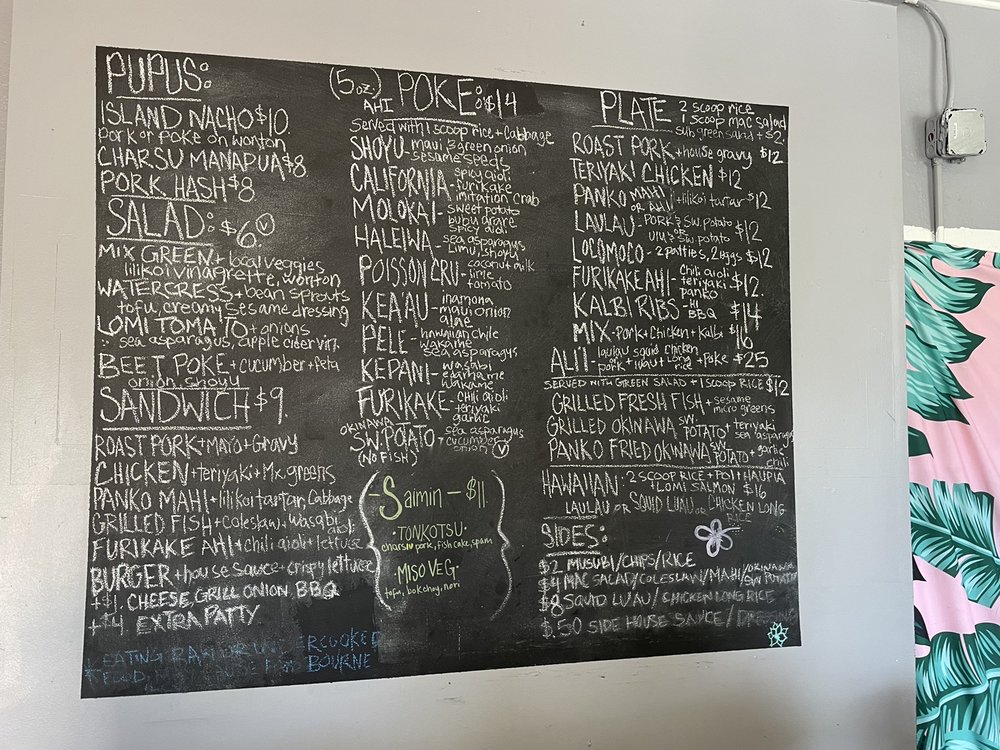 PUPUS:
ISLAND NACHO $10.
pork or poke on wonton
CHARSU MANAPUA $8
PORK HASH $8
SALAD: $6. V
MIX GREEN + local veggies
lilikoi vinagrette, wonton
WATERCRESS + bean sprouts
tofu, creamy sesame dressing
LOMI TOMATO + onions
sea asparagus, apple cider vin.
BEET POKE + cucumber + feta
onion, shoyu
SANDWICH $9.
ROAST PORK + Mayo + Gravy
CHICKEN + teriyaki + Mx. greens
PANKO MAHI + lilikoi tartar, Cabbage
GRILLED FISH + coleslaw, wasabi
aioli
FURIKAKE AHI + chili aioli + lettuce
BURGER + house sauce + crispy lettuce
+$1. CHEESE, GRILL ONION, BBQ
+$4. EXTRA PATTY
* EATING RAW OR UNDERCOOKED
FOOD BOURNE
(5oz.) AHI POKE: $14
served with 1 scoop rice + Cabbage
SHOYU - maui & green onion
sesame seeds
CALIFORNIA - spicy aioli
furikake
imitation crab
MOLOKAI - sweet potato
bubu arare
spicy aioli
HALEIWA - sea asparagus
Limu, shoyu
POISSON CRU - coconut milk
lime
tomato
KEA'AU - inamona
maui onion
alae
PELE - hawaiian chile
wakame
sea asparagus
KEPANI - wasabi
edamame
wakame
FURIKAKE - chili aioli
teriyaki
garlic
OKINAWAN
SW. POTATO - sea asparagus
cucumber
onion V
(NO FISH)
- Saimin - $11
• TONKOTSU •
charsu pork, fish cake, spam
• MISO VEG •
tofu, bok choy, nori
PLATE 2 scoop rice
1 scoop mac salad
sub green salad + $2
ROAST PORK + house gravy $12
TERIYAKI CHICKEN $12
PANKO MAHI OR AHI + lilikoi tartar $12
LAULAU - PORK & SW. POTATO
or
ULU & SW. POTATO $12
LOCOMOCO - 2 patties, 2 eggs $12
FURIKAKE AHI - chili aioli
teriyaki
panko $12.
KALBI RIBS - HI BBQ $14
MIX - pork + chicken + kalbi $16
ALI'I - laulau squid chicken
or pork + luau + long rice + poke $25
SERVED WITH GREEN SALAD + 1 SCOOP RICE $12
GRILLED FRESH FISH + sesame
micro greens
GRILLED OKINAWA SW. POTATO + teriyaki
sea asparagus
PANKO FRIED OKINAWA SW. POTATO + garlic
chili
HAWAIIAN: 2 SCOOP RICE + POI + HAUPIA
+ LOMI SALMON $16
LAULAU OR SQUID LUAU OR CHICKEN LONG
RICE
SIDES:
$2 MUSUBI/CHIPS/RICE
$4 MAC SALAD/COLESLAW/MAHI/OKINAWA
SW. POTATO
$8 SQUID LU'AU/CHICKEN LONG RICE
$.50 SIDE HOUSE SAUCE/DRESSING